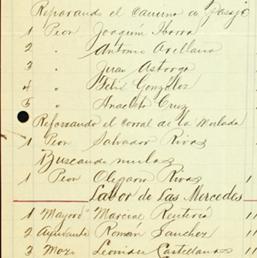 Reparando el Camino de Pasaje
1 Peon Joaquin Ibarra
2 " Antonio Arellano
3 " Juan Astorga
4 " Felix Gonzalez
5 " Anacleto Cruz
Reforzando el Corral de la Mulada
1 Peon Salvador Rivas
Buscando mulas
1 Peon Olegario Rivas
Labor de Las Mercedes
1 Mayordo Marcial Renteria 11
2 Ayudante Roman Sanchez 11
3 Mozo Leonides Castellanos 11